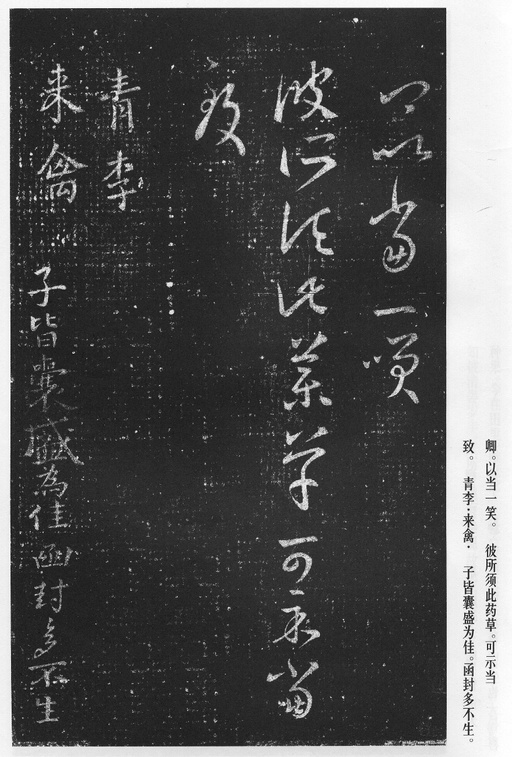 卿。以当一笑。 彼所须此药草。可示当
致。 青李·来禽· 子皆囊盛为佳。函封多不生。
卿以當一笑
彼所須此藥草可示當
致
青李
来禽 子皆囊盛為佳函封多不生